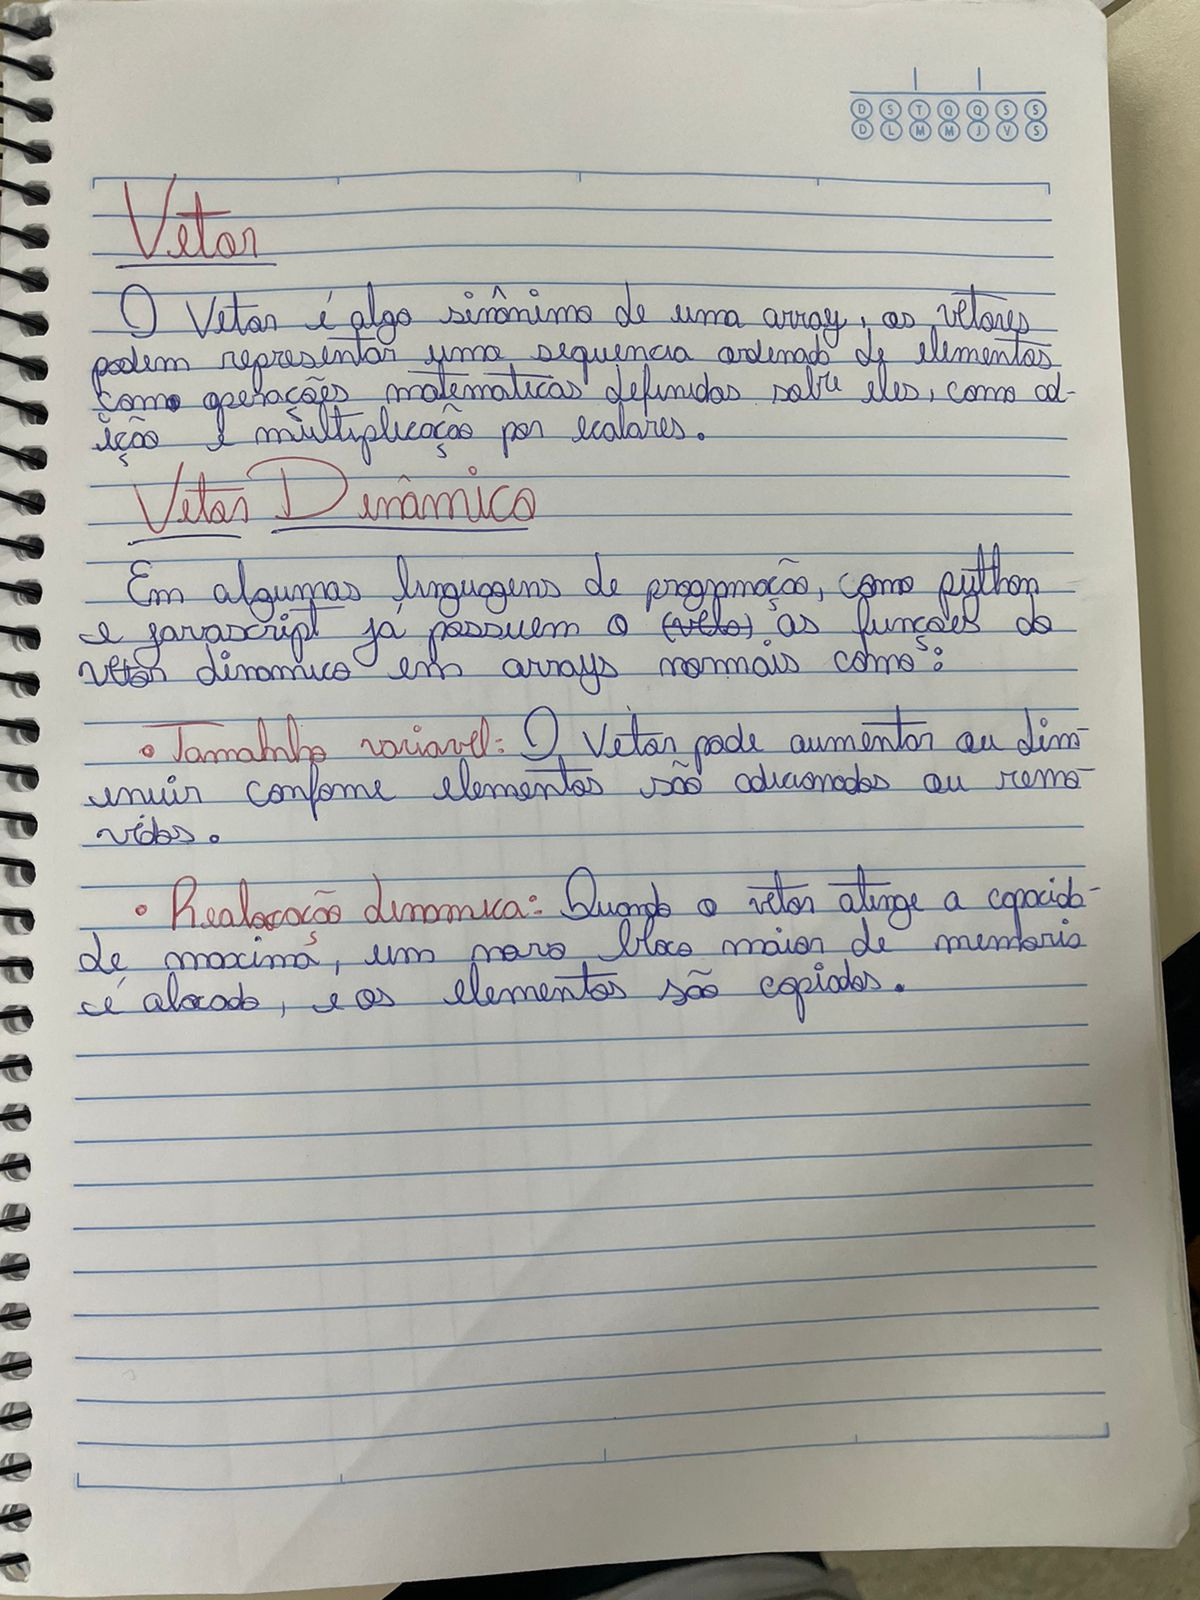 D S T Q Q S S
D L M M J V S
Vetor
O Vetor é algo sinônimo de uma array, os vetores
podem representar uma sequencia ordenado de elementos
como operações matematicas definidas sobre eles, como ad-
ição e multiplicação por ecalares.
Vetor Dinâmico
Em algumas linguagens de programação, como python
e javascript já possuem o (veto) as funções do
vetor dinamico em arrays normais como:
• Tamanho variavel: O Vetor pode aumentar ou dim-
inuir confome elementos são adicionados ou remo-
vidos.
• Realocação dinamica: Quando o vetor atinge a capacida-
de maxima, um novo bloco maior de memoria
é alocado, e os elementos são copiados.